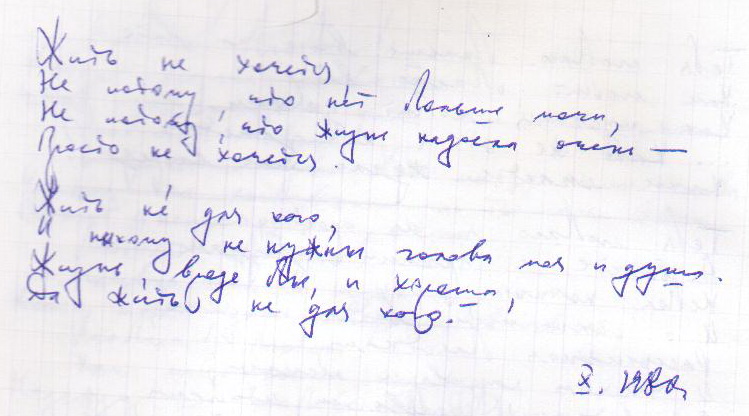 Жить не хочется
Не потому, что нет больше мочи,
Не потому, что жизнь надоела очень —
Просто не хочется.
Жить не для кого,
И никому не нужны голова моя и душа.
Жизнь вроде бы, и хороша,
Да жить, не для кого.
X. 198